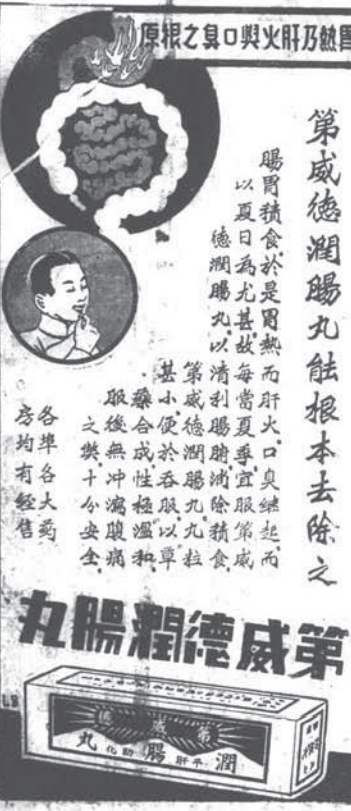 胃熱乃肝火與口臭之根原
第威德潤腸丸能根本去除之
腸胃積食。於是胃熱而肝火。口臭繼起。而
以夏日為尤甚。故每當夏季。宜服第威
德潤腸丸。以清利腸腑。消除積食。
第威德潤腸丸丸粒
甚小。便於吞服。以草
藥合成。性極溫和。
服後無冲瀉腹痛
之弊。十分安全。
各埠各大药
房均有經售
第威德潤腸丸
第威德
潤平肝腸助化丸